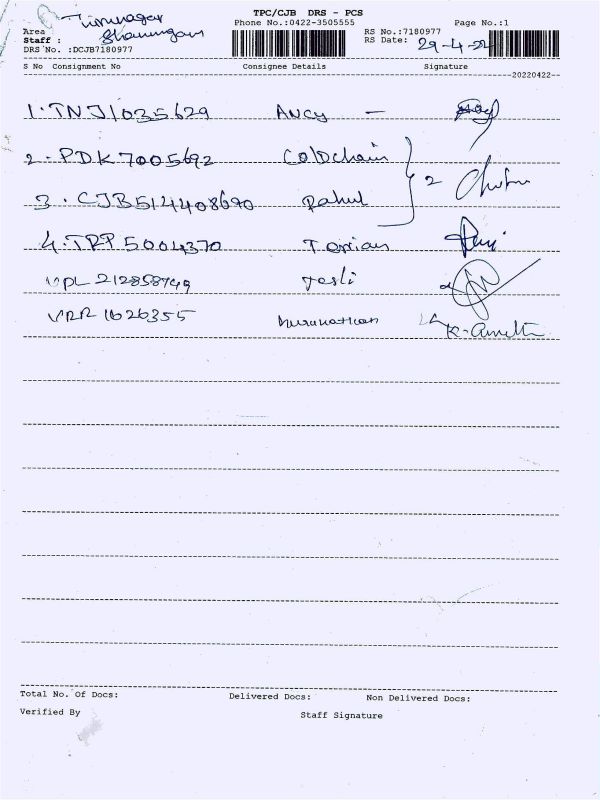 TPC/CJB DRS - PCS
Phone No.:0422-3505555 Page No.:1
Area : Tirunagar
Staff : Shanmugam
RS No.:7180977
RS Date: 29-4-22
DRS No. :DCJB7180977
S No Consignment No Consignee Details Signature
20220422
1. TNJ1035629 Ancy —
2. PDK7005692 Coldchain
3. CJB514408690 Rahul 2
4. TRP5004370
VPL 212858749 Jesli
VRR 1626355
Total No. Of Docs: Delivered Docs: Non Delivered Docs:
Verified By Staff Signature